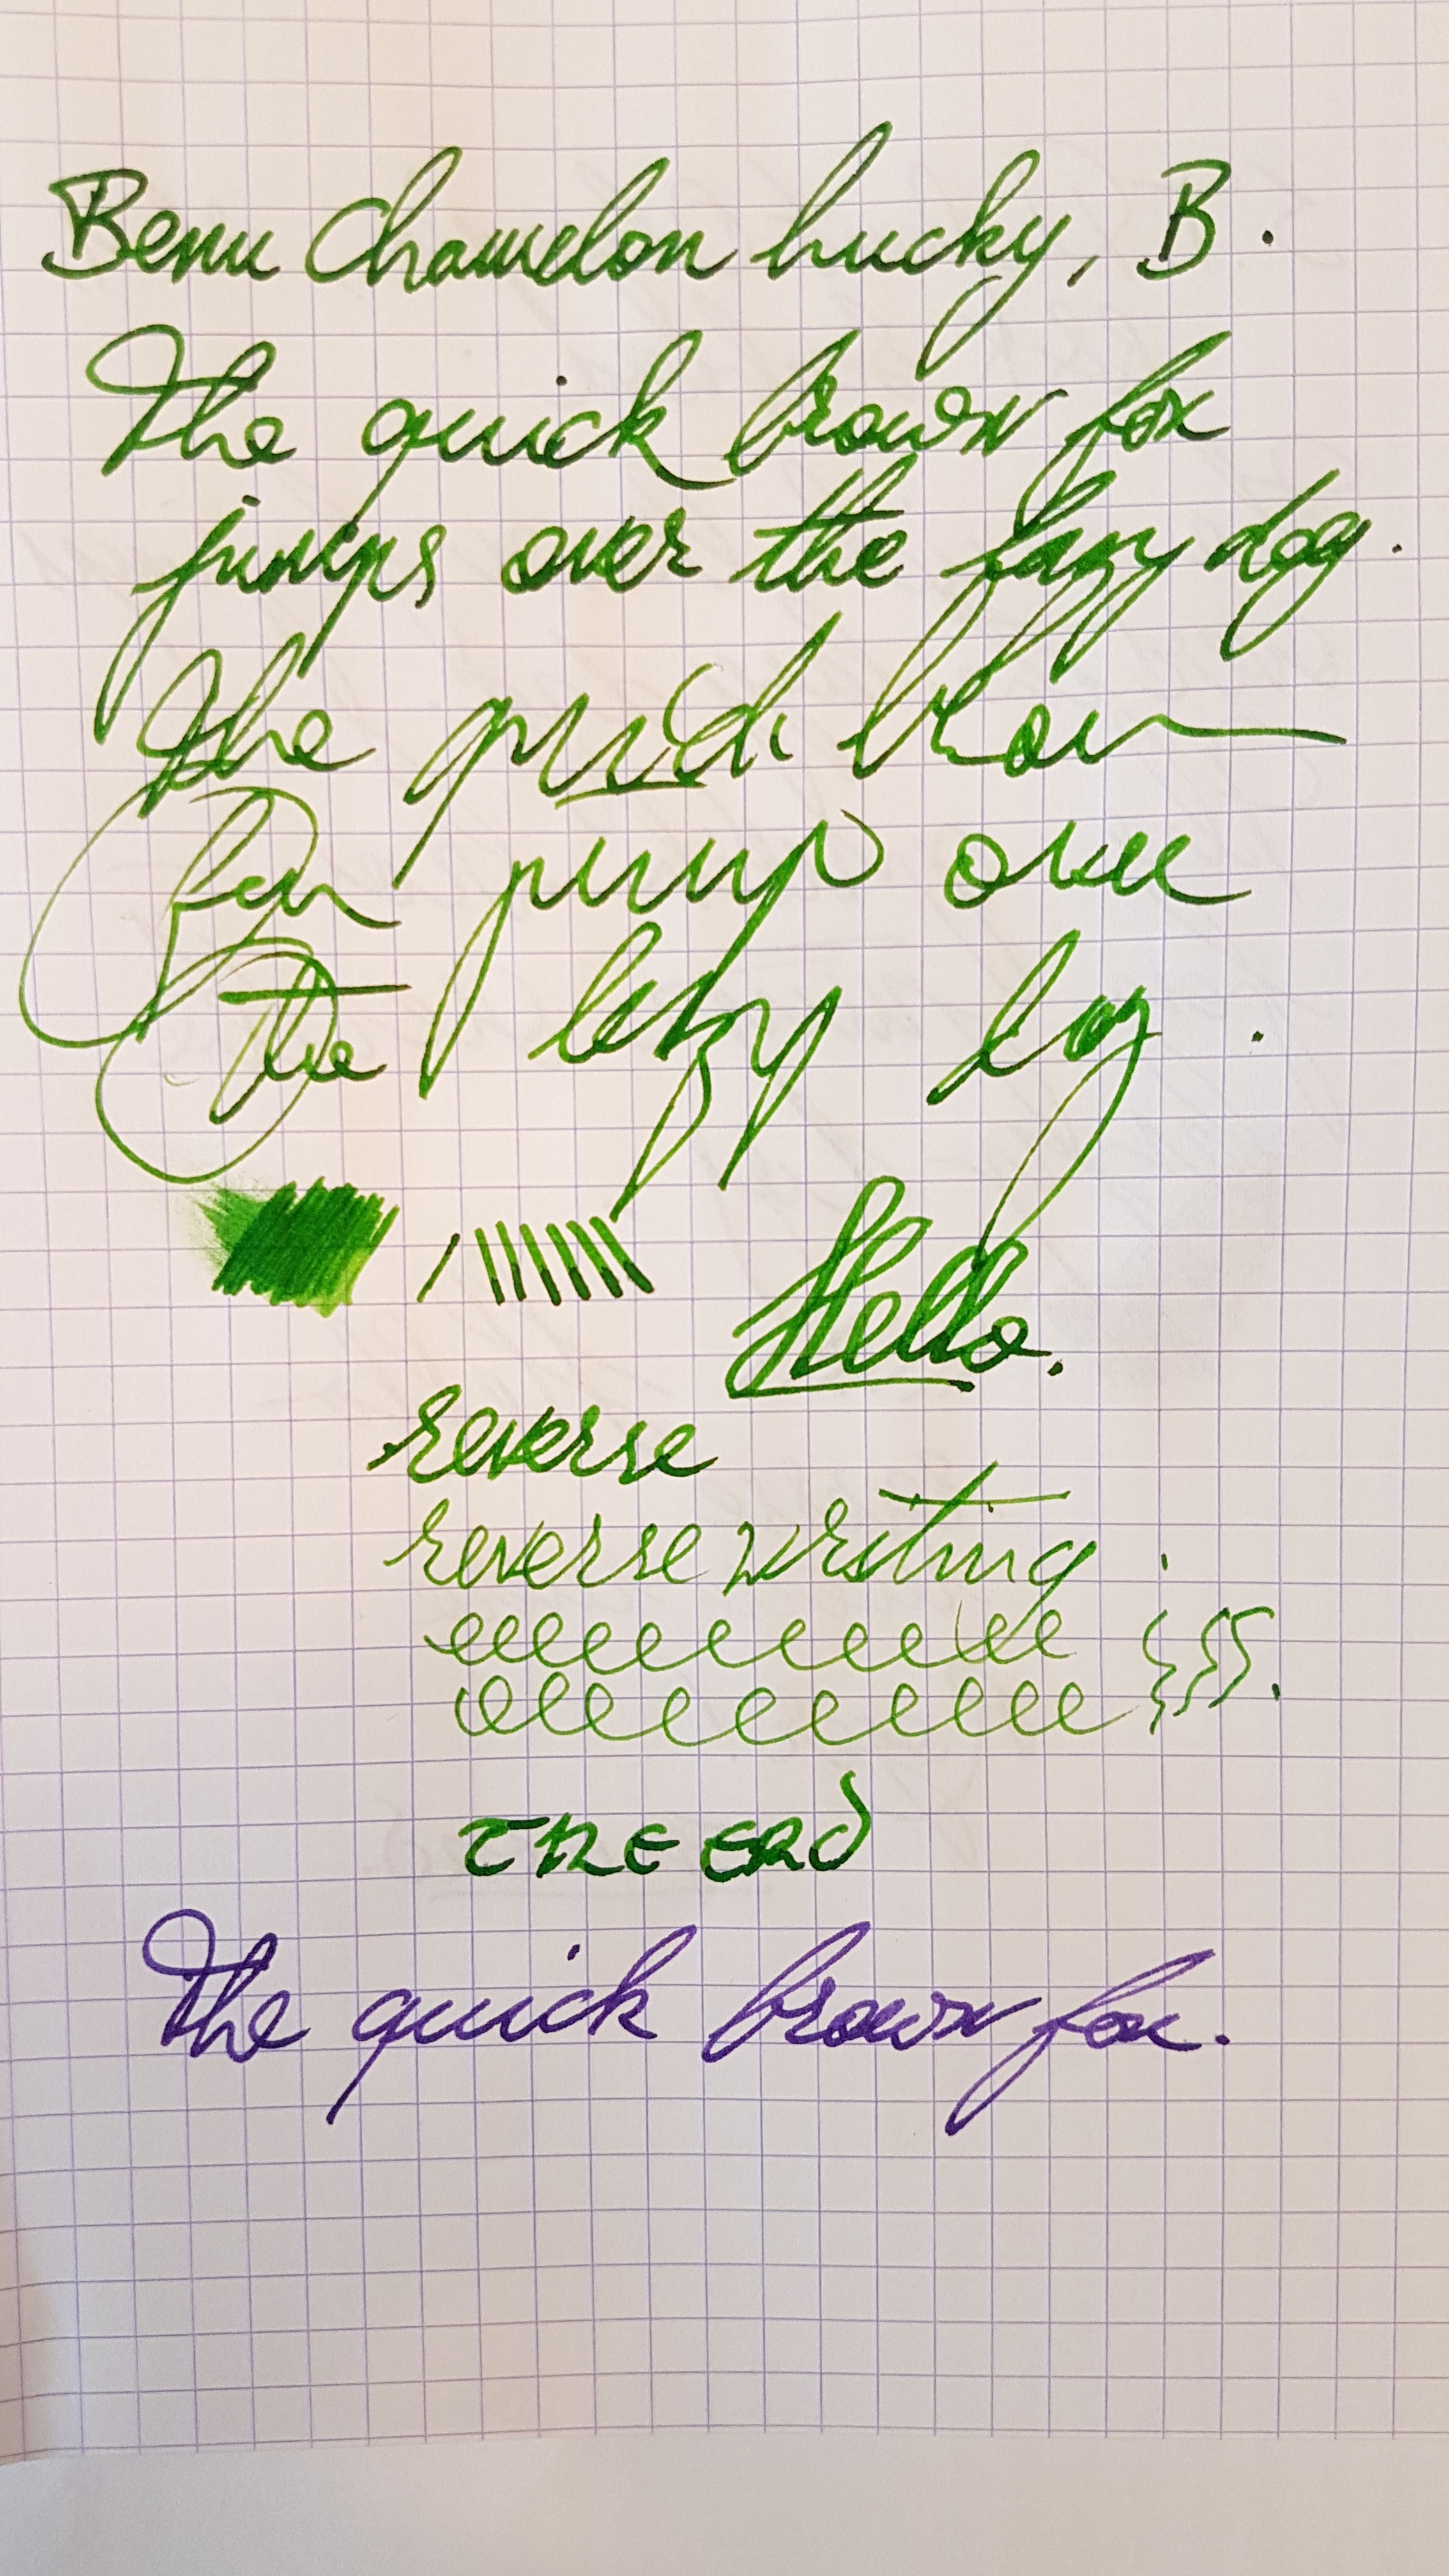 Benu Chamelon Lucky, B.
The quick brown fox
jumps over the lazy dog.
The quick brown
fox jump over
the lazy dog.
Hello.
reverse
reverse writing
THE END
The quick brown fox.